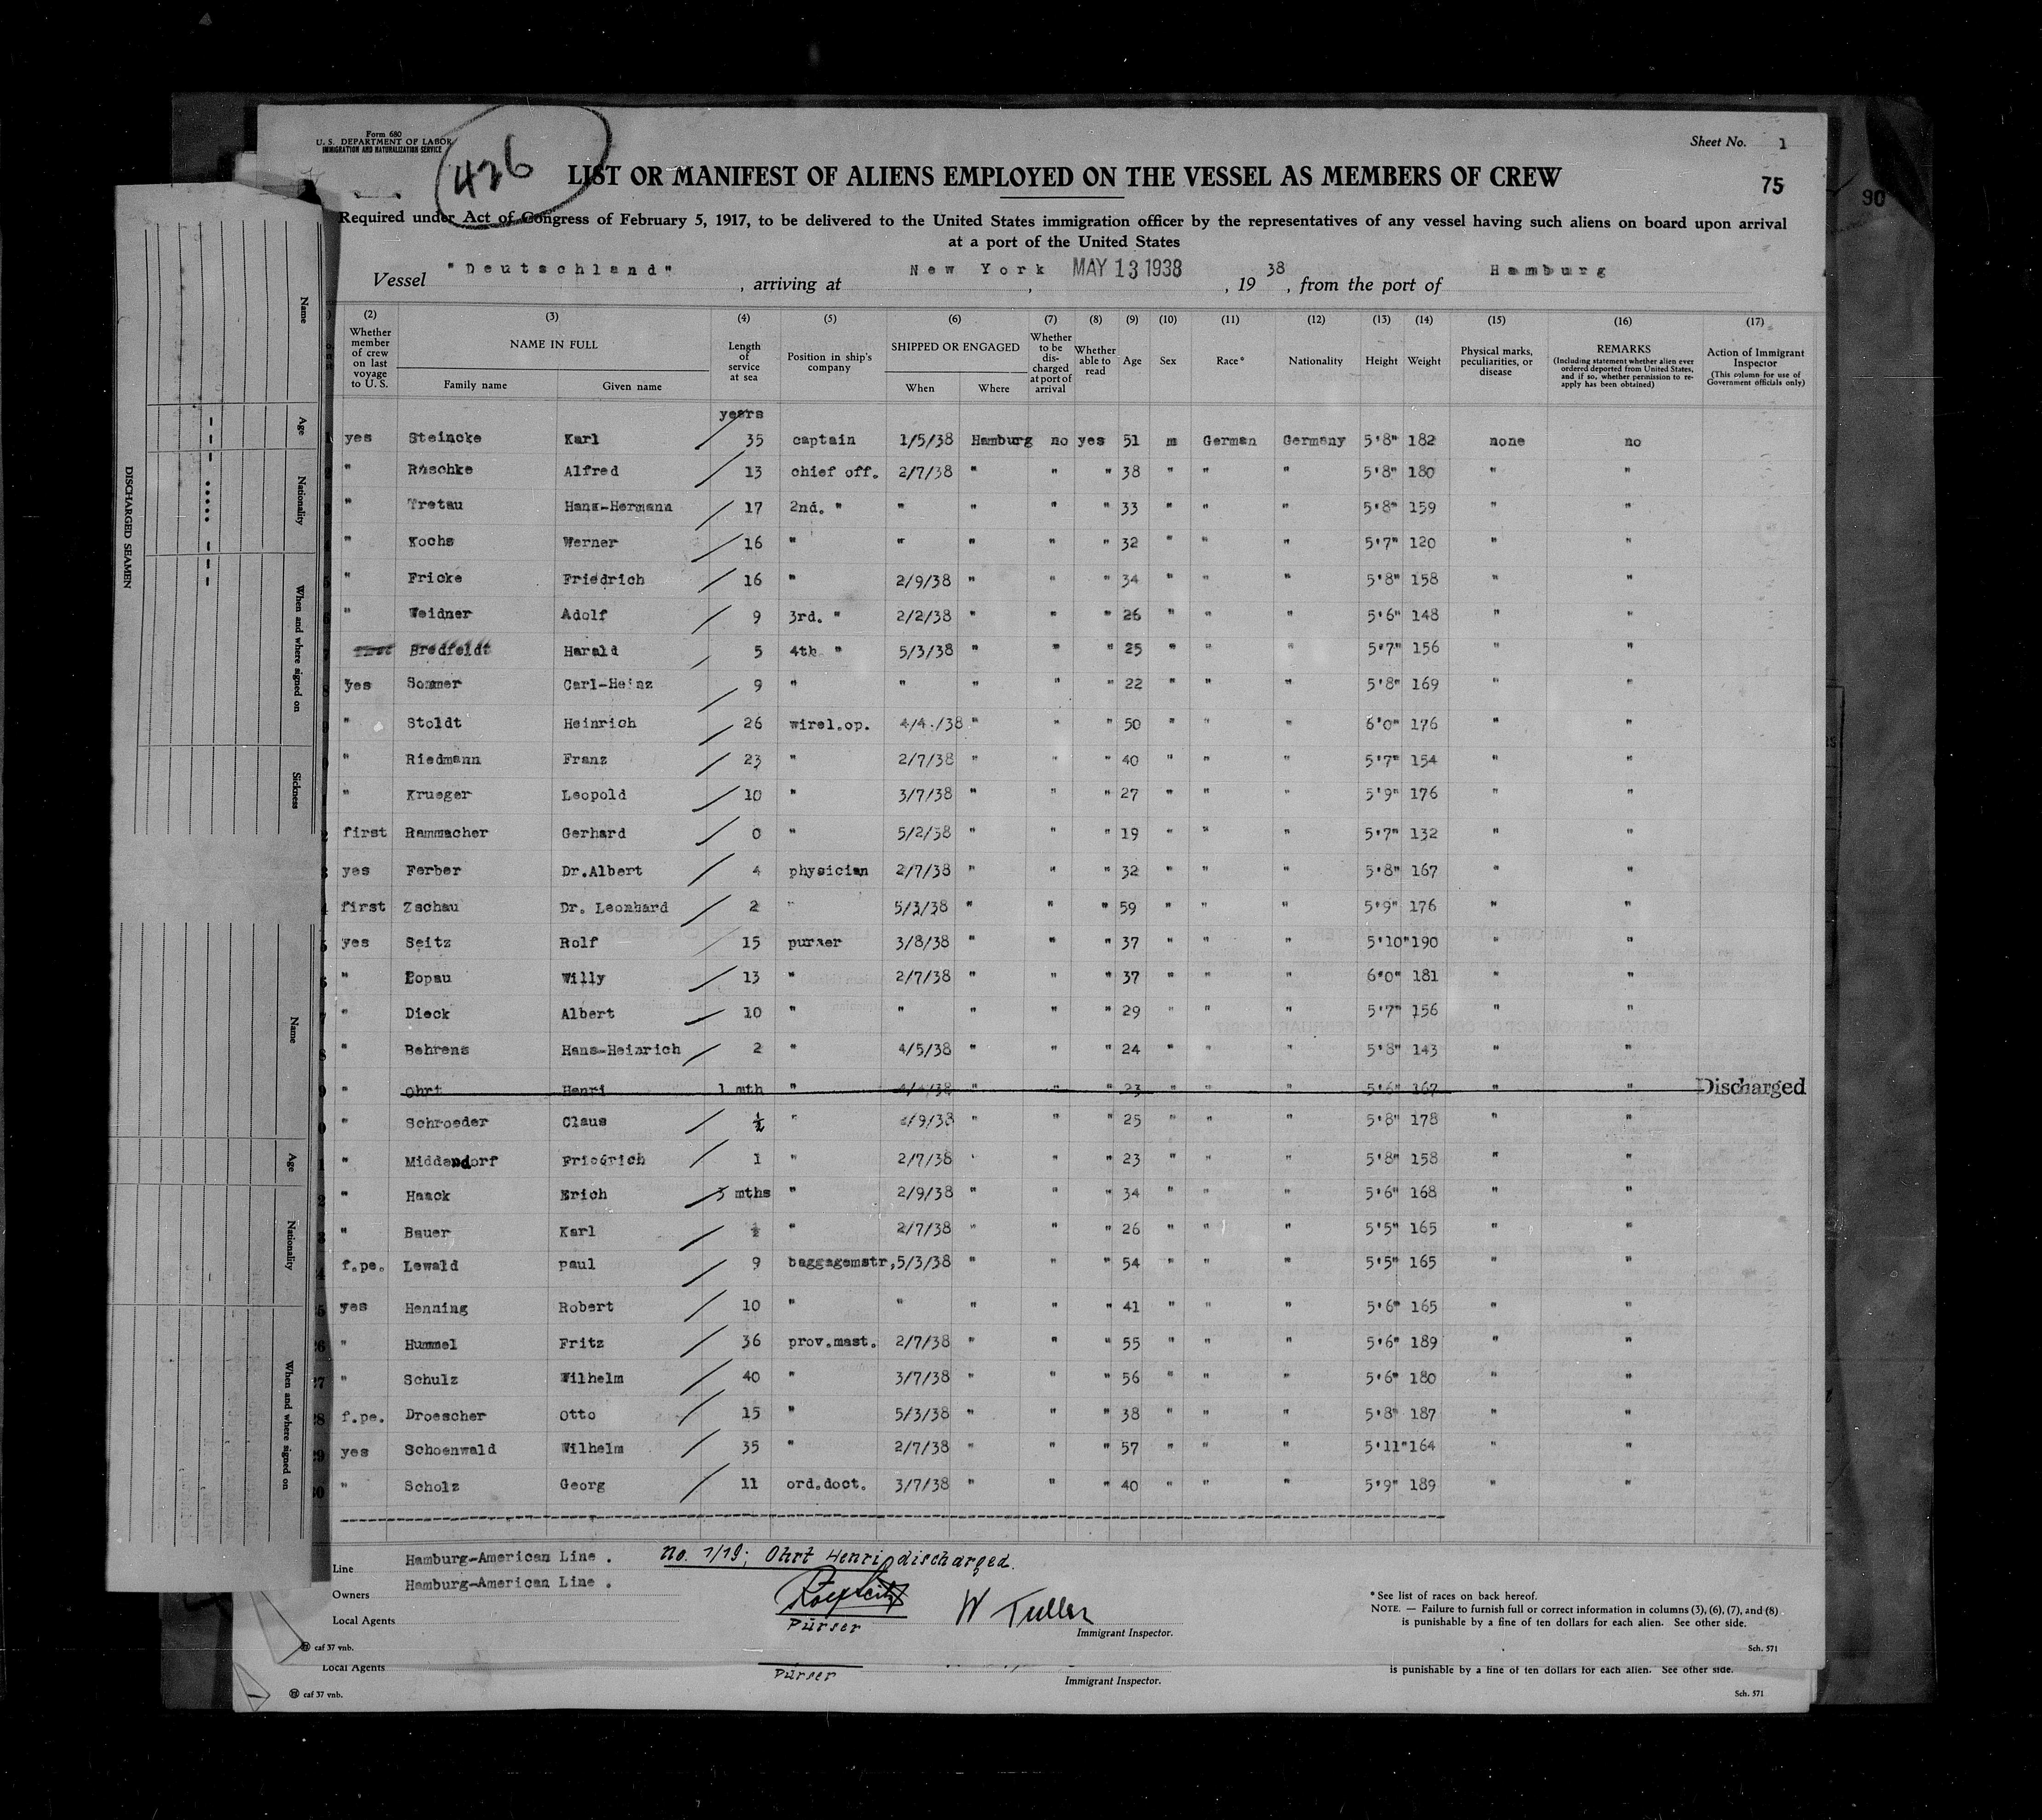 Form 680
U. S. DEPARTMENT OF LABOR
IMMIGRATION AND NATURALIZATION SERVICE
426
Sheet No. 1
LIST OR MANIFEST OF ALIENS EMPLOYED ON THE VESSEL AS MEMBERS OF CREW
75
90
Required under Act of Congress of February 5, 1917, to be delivered to the United States immigration officer by the representatives of any vessel having such aliens on board upon arrival
at a port of the United States
Vessel "Deutschland", arriving at New York, MAY 13 1938, 1938, from the port of Hamburg
(2) (3) (4) (5) (6) (7) (8) (9) (10) (11) (12) (13) (14) (15) (16) (17)
Whether member of crew on last voyage to U. S.
NAME IN FULL
Family name Given name
Length of service at sea
Position in ship's company
SHIPPED OR ENGAGED
When Where
Whether to be discharged at port of arrival
Whether able to read
Age Sex Race* Nationality Height Weight
Physical marks, peculiarities, or disease
REMARKS
(Including statement whether alien ever ordered deported from United States, and if so, whether permission to reapply has been obtained)
Action of Immigrant Inspector
(This column for use of Government officials only)
years
1 yes Steincke Karl 35 captain 1/5/38 Hamburg no yes 51 m German Germany 5'8" 182 none no
" Raschke Alfred 13 chief off. 2/7/38 " " " 38 " " " 5'8" 180 " "
" Tretau Hans-Hermann 17 2nd. " " " " " 33 " " " 5'8" 159 " "
" Kochs Werner 16 " " " " " 32 " " " 5'7" 120 " "
5 " Fricke Friedrich 16 " 2/9/38 " " " 34 " " " 5'8" 158 " "
6 " Weidner Adolf 9 3rd. " 2/2/38 " " " 26 " " " 5'6" 148 " "
7 first Bredfeldt Harald 5 4th " 5/3/38 " " " 25 " " " 5'7" 156 " "
8 yes Sommer Carl-Heinz 9 " " " " " 22 " " " 5'8" 169 " "
9 " Stoldt Heinrich 26 wirel.op. 4/4./38 " " " 50 " " " 6'0" 176 " "
" Riedmann Franz 23 " 2/7/38 " " " 40 " " " 5'7" 154 " "
1 " Krueger Leopold 10 " 3/7/38 " " " 27 " " " 5'9" 176 " "
2 first Rammacher Gerhard 0 " 5/2/38 " " " 19 " " " 5'7" 132 " "
3 yes Ferber Dr.Albert 4 physician 2/7/38 " " " 32 " " " 5'8" 167 " "
first Zschau Dr. Leonhard 2 " 5/3/38 " " " 59 " " " 5'9" 176 " "
5 yes Seitz Rolf 15 purser 3/8/38 " " " 37 " " " 5'10" 190 " "
" Popau Willy 13 " 2/7/38 " " " 37 " " " 6'0" 181 " "
7 " Dieck Albert 10 " " " " " 29 " " " 5'7" 156 " "
8 " Behrens Hans-Heinrich 2 " 4/5/38 " " " 24 " " " 5'8" 143 " "
9 " Ohrt Henri 1 mth " 4/4/38 " " " 23 " " " 5'6" 167 " " Discharged
" Schroeder Claus ½ " /9/38 " " " 25 " " " 5'8" 178 " "
1 " Middendorf Friedrich 1 " 2/7/38 " " " 23 " " " 5'8" 158 " "
2 " Haack Erich 3 mths " 2/9/38 " " " 34 " " " 5'6" 168 " "
3 " Bauer Karl ½ " 2/7/38 " " " 26 " " " 5'5" 165 " "
f.pe. Lewald Paul 9 baggagemstr, 5/3/38 " " " 54 " " " 5'5" 165 " "
5 yes Henning Robert 10 " " " " " 41 " " " 5'6" 165 " "
26 " Hummel Fritz 36 prov.mast. 2/7/38 " " " 55 " " " 5'6" 189 " "
27 " Schulz Wilhelm 40 " 3/7/38 " " " 56 " " " 5'6" 180 " "
28 f.pe. Droescher Otto 15 " 5/3/38 " " " 38 " " " 5'8" 187 " "
29 yes Schoenwald Wilhelm 35 " 2/7/38 " " " 57 " " " 5'11" 164 " "
30 " Scholz Georg 11 ord.doct. 3/7/38 " " " 40 " " " 5'9" 189 " "
Line Hamburg-American Line .
No. 1/19; Ohrt Henri discharged.
Owners Hamburg-American Line .
Local Agents
Rolf Seitz
Purser
W Tuller
Immigrant Inspector.
* See list of races on back hereof.
NOTE. — Failure to furnish full or correct information in columns (3), (6), (7), and (8)
is punishable by a fine of ten dollars for each alien. See other side.
caf 37 vnb.
Sch. 571
Local Agents
Purser
Immigrant Inspector.
is punishable by a fine of ten dollars for each alien. See other side.
caf 37 vnb.
Sch. 571
DISCHARGED SEAMEN
Name
Age
Nationality
When and where signed on
Sickness
Name
Age
Nationality
When and where signed on